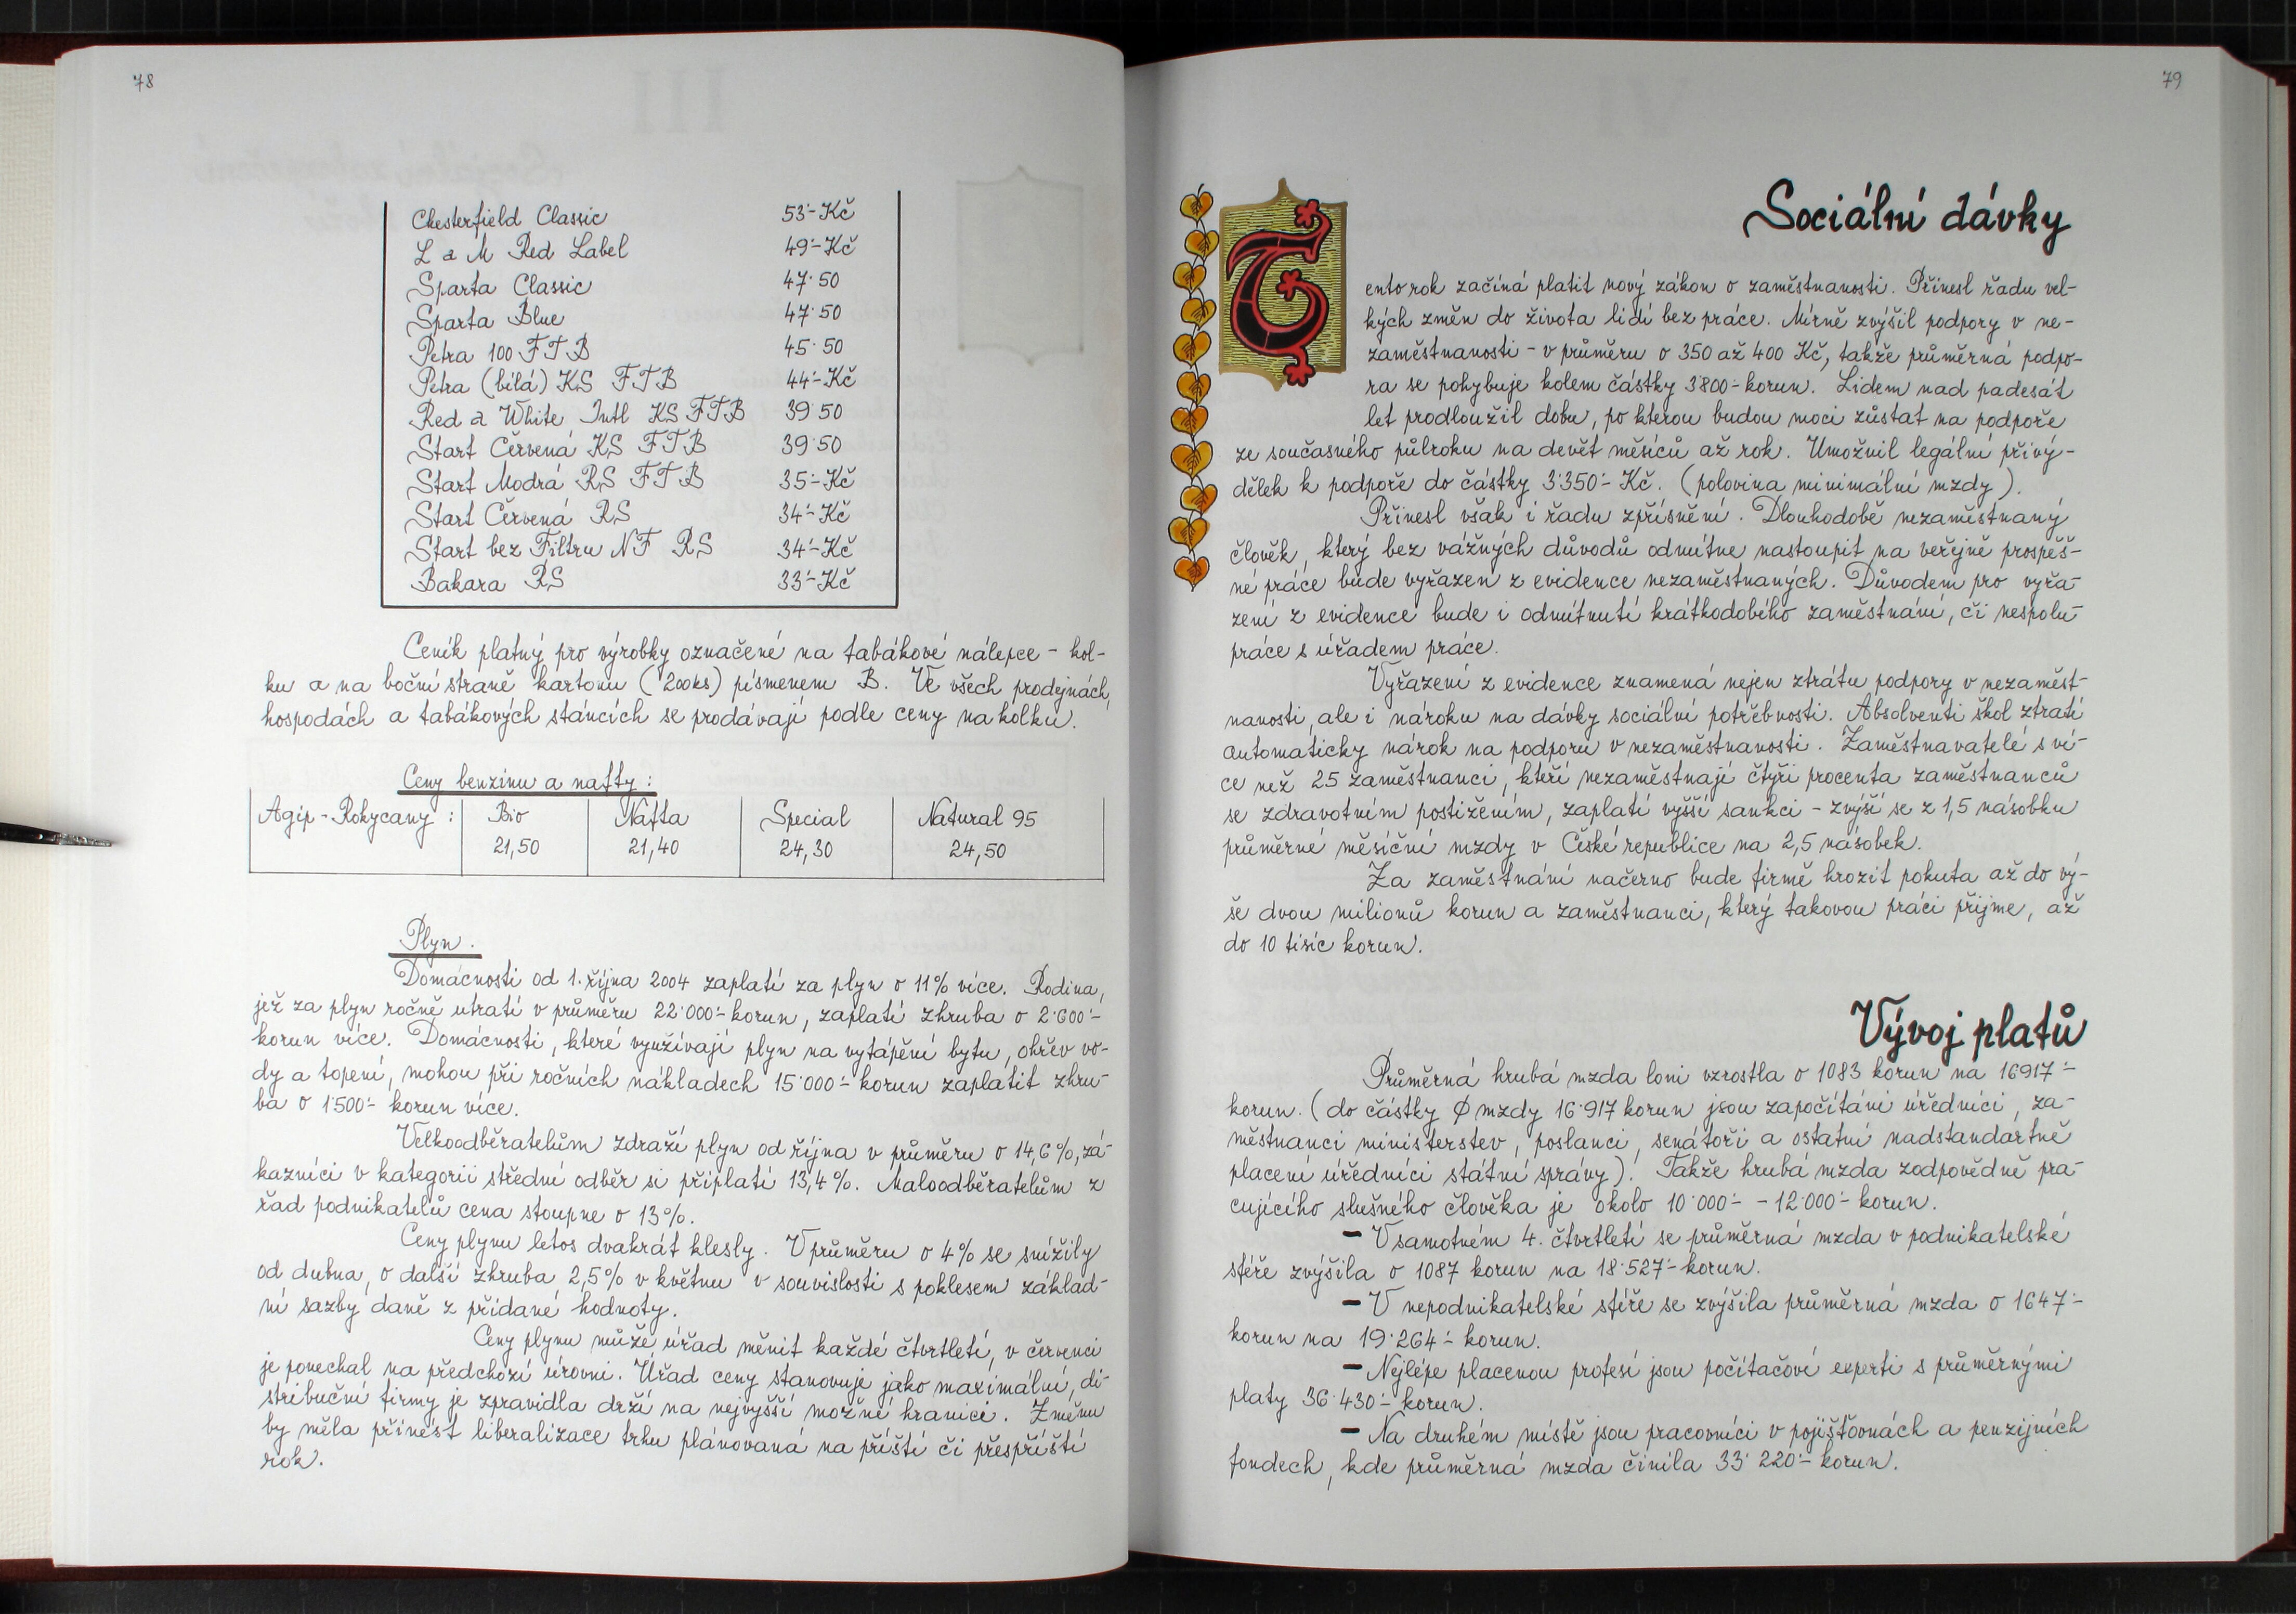 78
Chesterfield Classic 53'-Kč
L a M Red Label 49'-Kč
Sparta Classic 47'50
Sparta Blue 47'50
Petra 100 FTB 45'50
Petra (bílá) KS FTB 44'-Kč
Red a White Intl KS FTB 39'50
Start Červená KS FTB 39'50
Start Modrá RS FTB 35'-Kč
Start Červená RS 34'-Kč
Start bez Filtru NF RS 34'-Kč
Bakara RS 33'-Kč
Ceník platný pro výrobky označené na tabákové nálepce - kol-
ku a na boční straně kartonu (200ks) písmenem B. Ve všech prodejnách,
hospodách a tabákových stáncích se prodávají podle ceny na kolku.
Ceny benzínu a nafty:
Agip-Rokycany: Bio Nafta Special Natural 95
21,50 21,40 24,30 24,50
Plyn.
Domácnosti od 1. října 2004 zaplatí za plyn o 11% více. Rodina,
jež za plyn ročně utratí v průměru 22'000'- korun, zaplatí zhruba o 2'600'-
korun více. Domácnosti, které využívají plyn na vytápění bytu, ohřev vo-
dy a topení, mohou při ročních nákladech 15'000'- korun zaplatit zhru-
ba o 1'500'- korun více.
Velkoodběratelům zdraží plyn od října v průměru o 14,6%, zá-
kazníci v kategorii střední odběr si připlatí 13,4%. Maloodběratelům z
řad podnikatelů cena stoupne o 13%.
Ceny plynu letos dvakrát klesly. V průměru o 4% se snížily
od dubna, o další zhruba 2,5% v květnu v souvislosti s poklesem základ-
ní sazby daně z přidané hodnoty.
Ceny plynu může úřad měnit každé čtvrtletí, v červenci
je ponechal na předchozí úrovni. Úřad ceny stanovuje jako maximální, di-
stribuční firmy je zpravidla drží na nejvyšší možné hranici. Změnu
by měla přinést liberalizace trhu plánovaná na příští či přespříští
rok.
79
Sociální dávky
Tento rok začíná platit nový zákon o zaměstnanosti. Přinesl řadu vel-
kých změn do života lidí bez práce. Mírně zvýšil podpory v ne-
zaměstnanosti - v průměru o 350 až 400 Kč, takže průměrná podpo-
ra se pohybuje kolem částky 3'800'- korun. Lidem nad padesát
let prodloužil dobu, po kterou budou moci zůstat na podpoře
ze současného půlroku na devět měsíců až rok. Umožnil legální přivý-
dělek k podpoře do částky 3'350'- Kč. (polovina minimální mzdy).
Přinesl však i řadu zpřísnění. Dlouhodobě nezaměstnaný
člověk, který bez vážných důvodů odmítne nastoupit na veřejně prospěš-
né práce bude vyřazen z evidence nezaměstnaných. Důvodem pro vyřa-
zení z evidence bude i odmítnutí krátkodobého zaměstnání, či nespolu-
práce s úřadem práce.
Vyřazení z evidence znamená nejen ztrátu podpory v nezaměst-
nanosti, ale i nároku na dávky sociální potřebnosti. Absolventi škol ztratí
automaticky nárok na podporu v nezaměstnanosti. Zaměstnavatelé s ví-
ce než 25 zaměstnanci, kteří nezaměstnají čtyři procenta zaměstnanců
se zdravotním postižením, zaplatí vyšší sankci - zvýší se z 1,5 násobku
průměrné měsíční mzdy v České republice na 2,5 násobek.
Za zaměstnání načerno bude firmě hrozit pokuta až do vý-
še dvou milionů korun a zaměstnanci, který takovou práci přijme, až
do 10 tisíc korun.
Vývoj platů
Průměrná hrubá mzda loni vzrostla o 1083 korun na 16917'-
korun. (do částky Ø mzdy 16'917 korun jsou započítáni úředníci, za-
městnanci ministerstev, poslanci, senátoři a ostatní nadstandartně
placení úředníci státní správy). Takže hrubá mzda zodpovědně pra-
cujícího slušného člověka je okolo 10'000'- - 12'000'- korun.
- V samotném 4. čtvrtletí se průměrná mzda v podnikatelské
sféře zvýšila o 1087 korun na 18'527'- korun.
- V nepodnikatelské sféře se zvýšila průměrná mzda o 1647'-
korun na 19'264'- korun.
- Nejlépe placenou profesí jsou počítačoví experti s průměrnými
platy 36'430'- korun.
- Na druhém místě jsou pracovníci v pojišťovnách a penzijních
fondech, kde průměrná mzda činila 33'220'- korun.